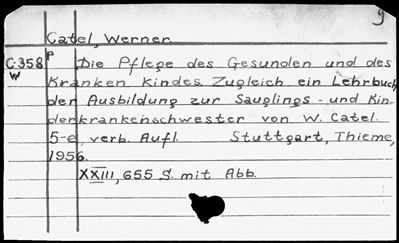 9
Catel, Werner.
P
C 358 Die Pflege des Gesunden und des
W Kranken Kindes. Zugleich ein Lehrbuch
der Ausbildung zur Sauglings- und Kin-
derkrankenschwester von W. Catel.
5-e, verb. Aufl. Stuttgart, Thieme,
1956.
XXIII, 655 S. mit Abb.